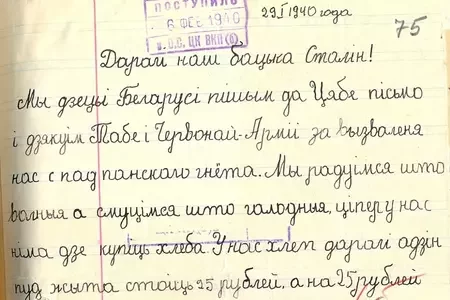 ПОСТУПИЛО
6 ФЕВ 1940
О.С. ЦК ВКП(б)
29/I 1940 года
75
Дарагі наш бацька Сталін!
Мы дзеці Беларусі пішым да Цябе пісьмо
і дзякуім Табе і Чэрвонай-Арміі за вызваленя
нас с пад панского гнёта. Мы радуімся што
вольныя а смуцімся што голодныя, ціпер у нас
німа дзе купіць хлеба. У нас хлеп дарагі адзін
пуд жыта стоіць 25 рублей, а на 25 рублей